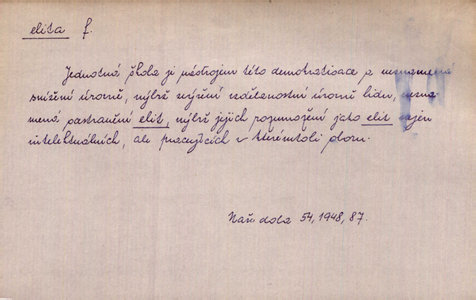 elita f.
Jednotná škola je nástrojem této demokratisace a neznamená
snížení úrovně, nýbrž zvýšení vzdělanostní úrovně lidu, nezna-
mená odstranění elit, nýbrž jejich rozmnožení jako elit nejen
intelektuálních, ale pracujících v kterémkoli oboru.
Naše doba 54, 1948, 87.